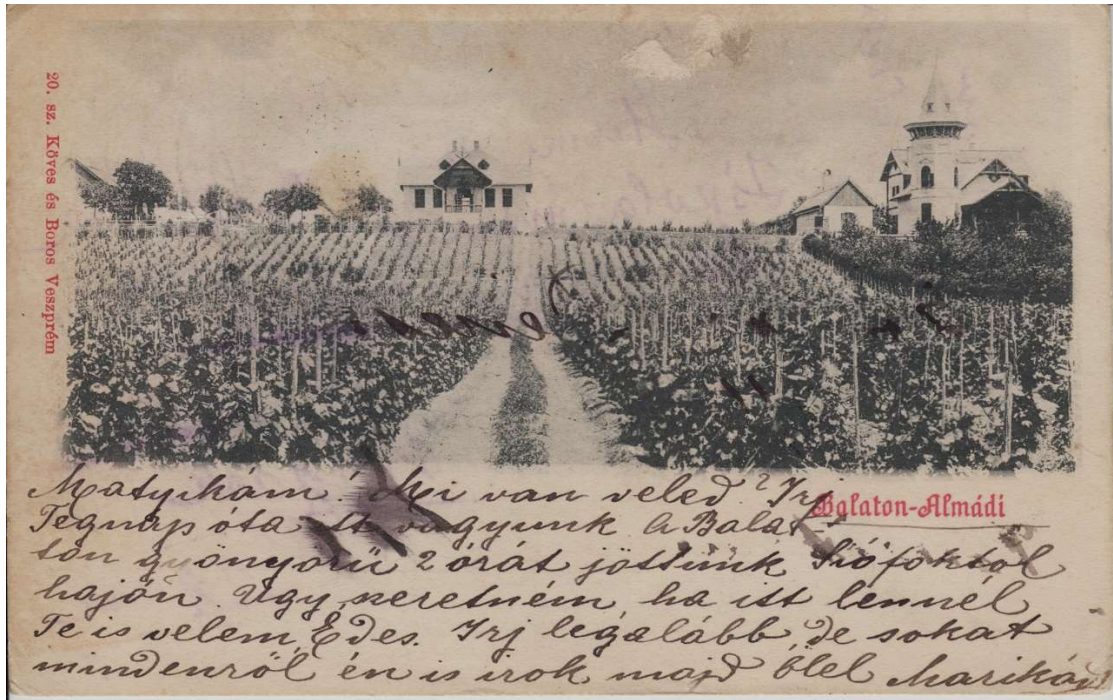 20. sz. Köves és Boros Veszprém
Balaton-Almádi
Matyikám! Mi van veled? Irj
Tegnap óta itt vagyunk a Bala-
ton gyönyörü 2 órát jöttünk Siófoktol
hajón. Ugy szeretném, ha itt lennél
Te is velem, Édes. Irj legalább, de sokat
mindenröl én is irok majd ölel Marikád